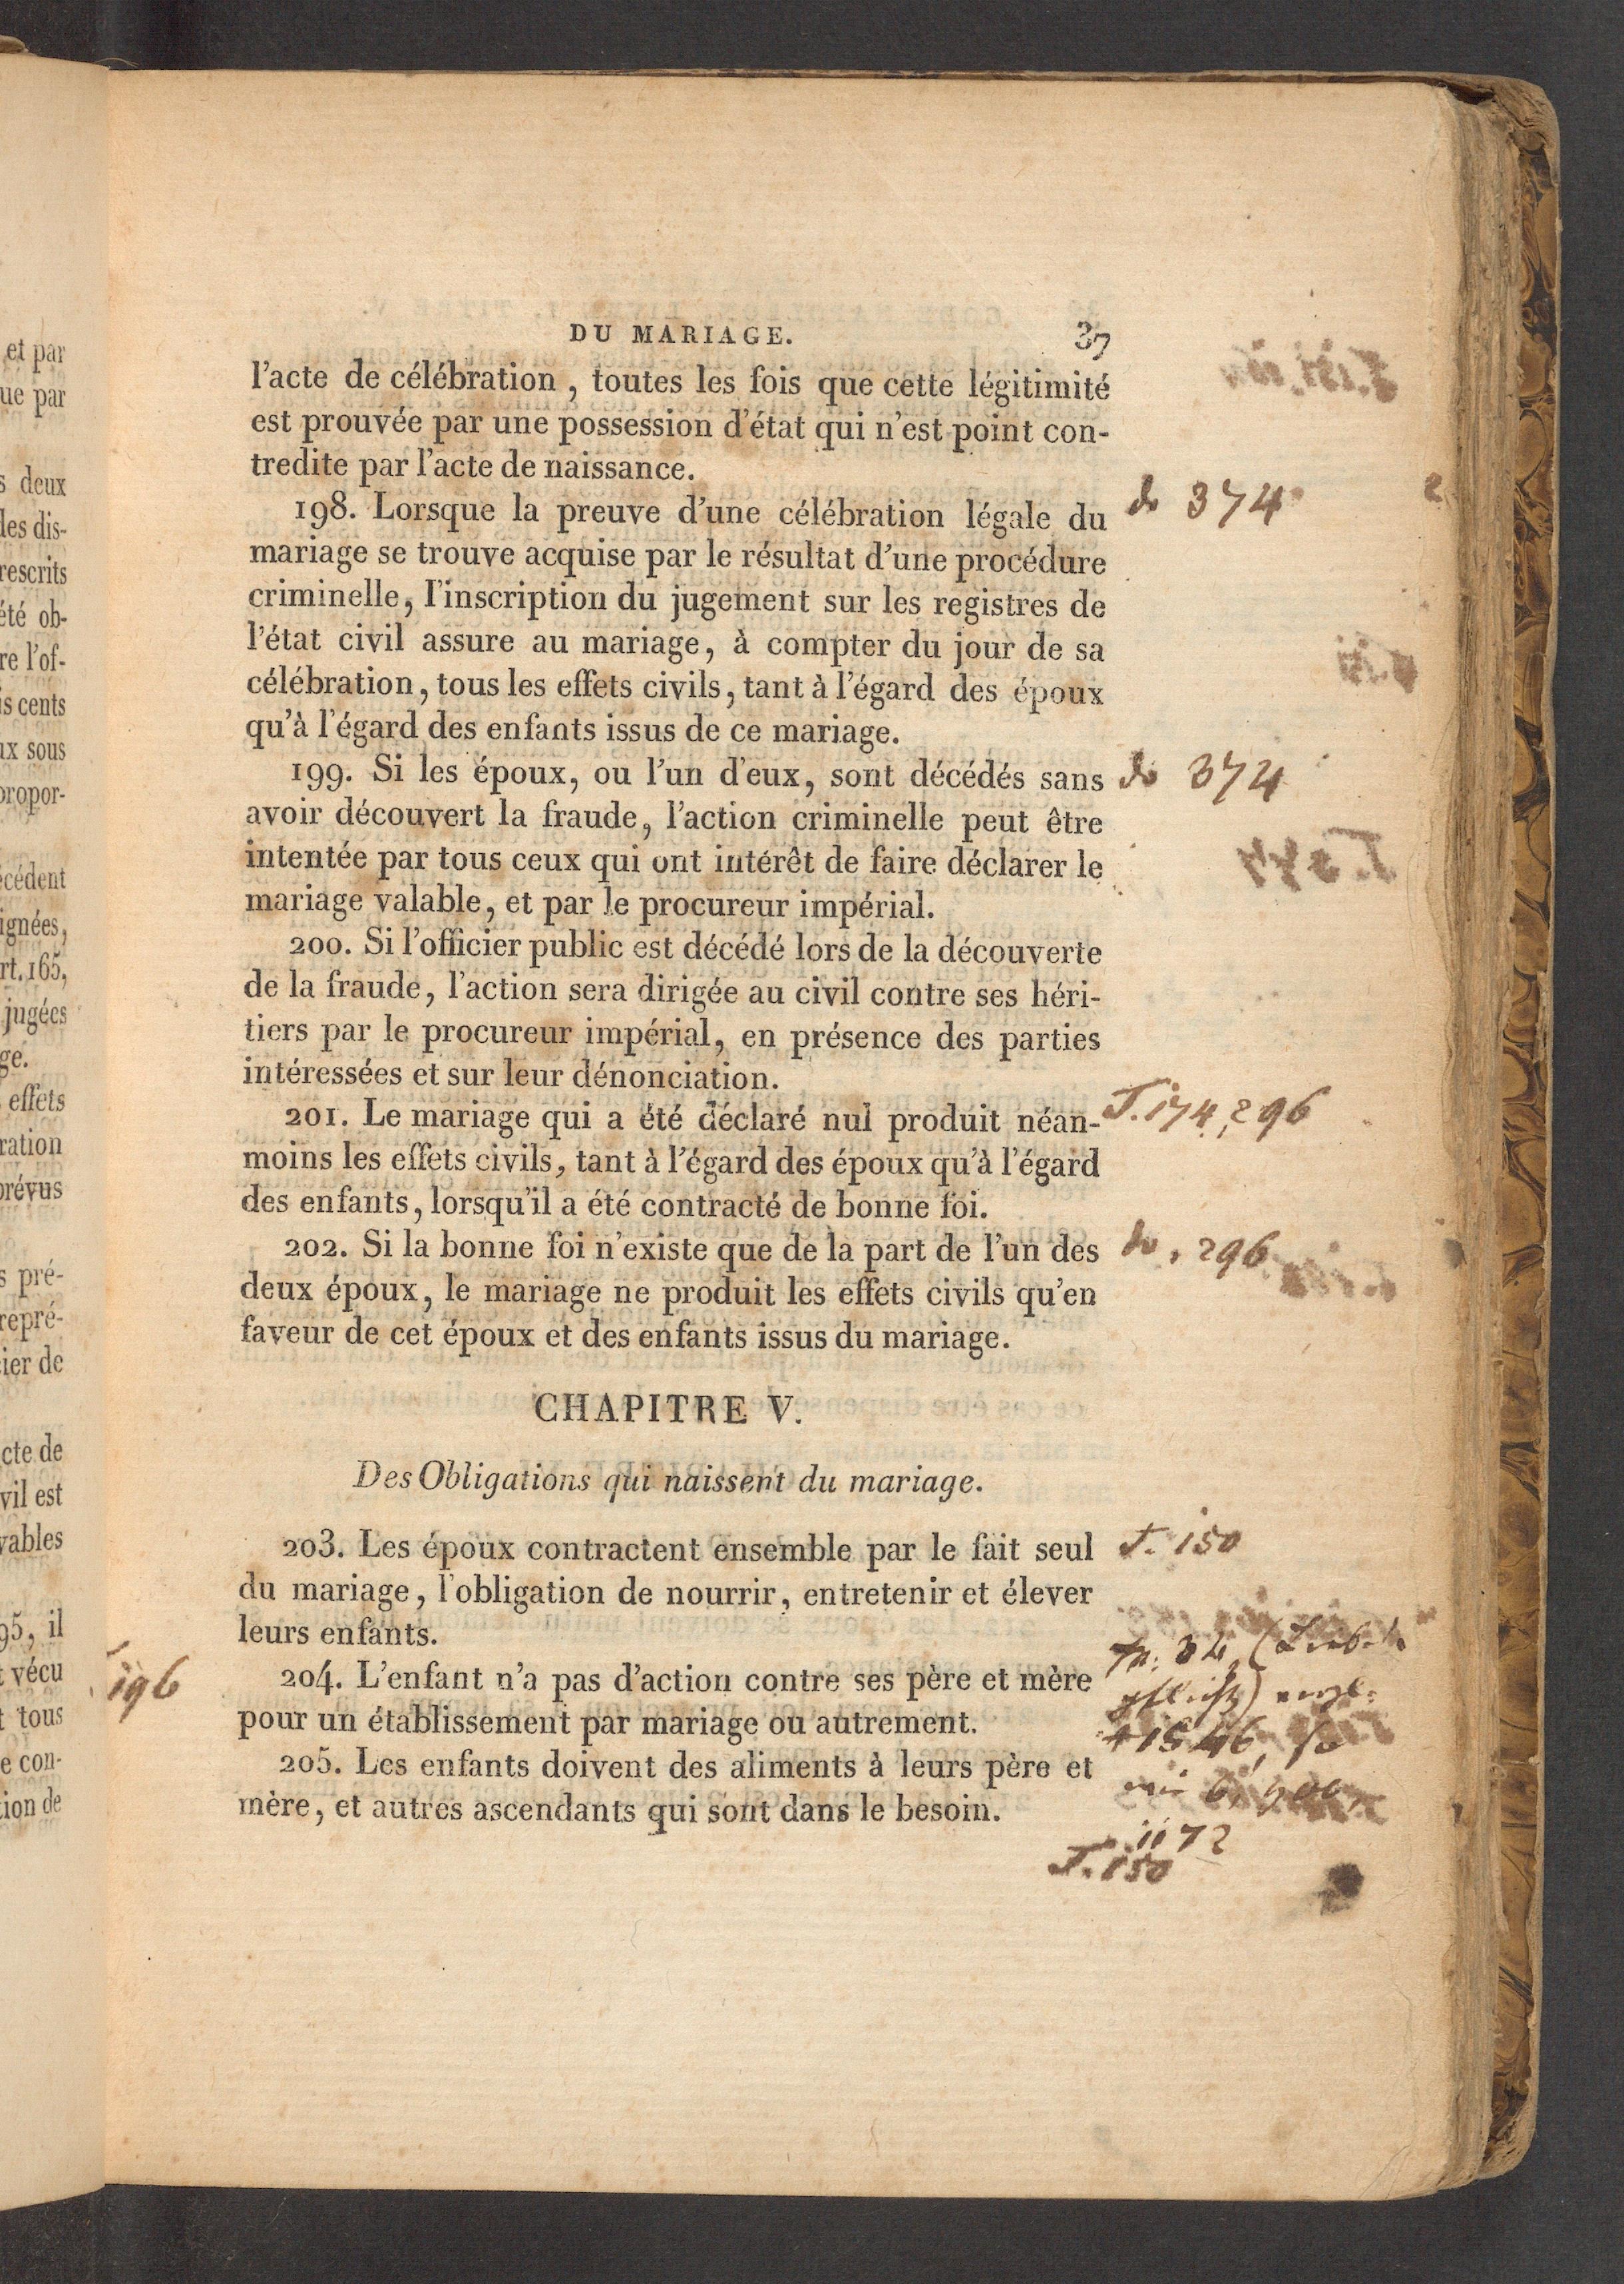 DU MARIAGE. 37
l'acte de célébration, toutes les fois que cette légitimité
est prouvée par une possession d'état qui n'est point con-
tredite par l'acte de naissance.
198. Lorsque la preuve d'une célébration légale du
do 374
mariage se trouve acquise par le résultat d'une procédure
criminelle, l'inscription du jugement sur les registres de
l'état civil assure au mariage, à compter du jour de sa
célébration, tous les effets civils, tant à l'égard des époux
qu'à l'égard des enfants issus de ce mariage.
199. Si les époux, ou l'un d'eux, sont décédés sans
do 374
avoir découvert la fraude, l'action criminelle peut être
intentée par tous ceux qui ont intérêt de faire déclarer le
mariage valable, et par le procureur impérial.
200. Si l'officier public est décédé lors de la découverte
de la fraude, l'action sera dirigée au civil contre ses héri-
tiers par le procureur impérial, en présence des parties
intéressées et sur leur dénonciation.
201. Le mariage qui a été déclaré nul produit néan-
T. 174, 296
moins les effets civils, tant à l'égard des époux qu'à l'égard
des enfants, lorsqu'il a été contracté de bonne foi.
202. Si la bonne foi n'existe que de la part de l'un des
do, 296
deux époux, le mariage ne produit les effets civils qu'en
faveur de cet époux et des enfants issus du mariage.
CHAPITRE V.
Des Obligations qui naissent du mariage.
203. Les époux contractent ensemble par le fait seul
T. 150
du mariage, l'obligation de nourrir, entretenir et élever
leurs enfants.
204. L'enfant n'a pas d'action contre ses père et mère
196
pour un établissement par mariage ou autrement.
1546,
205. Les enfants doivent des aliments à leurs père et
mère, et autres ascendants qui sont dans le besoin.
1172
T. 150
et par
ue par
s deux
les dis-
rescrits
été ob-
re l'of-
is cents
ux sous
propor-
écédent
ignées,
rt. 165,
jugées
ge.
effets
ration
prévus
s pré-
repré-
cier de
cte de
vil est
vables
95, il
t vécu
t tous
e con-
tion de